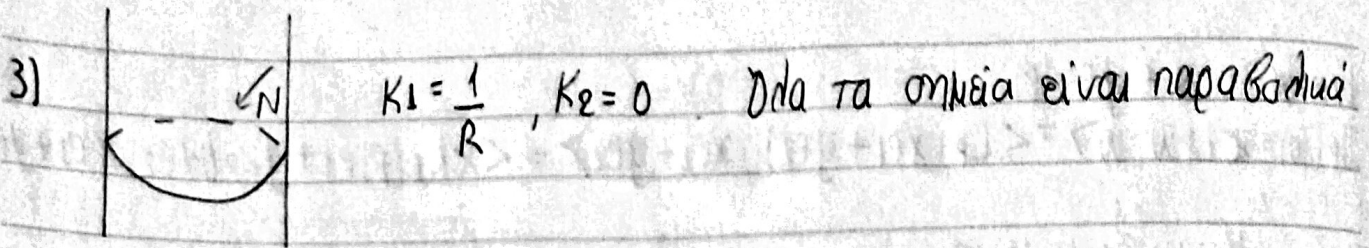 3) N K1 = 1/R , K2 = 0 Όλα τα σημεία είναι παραβολικά